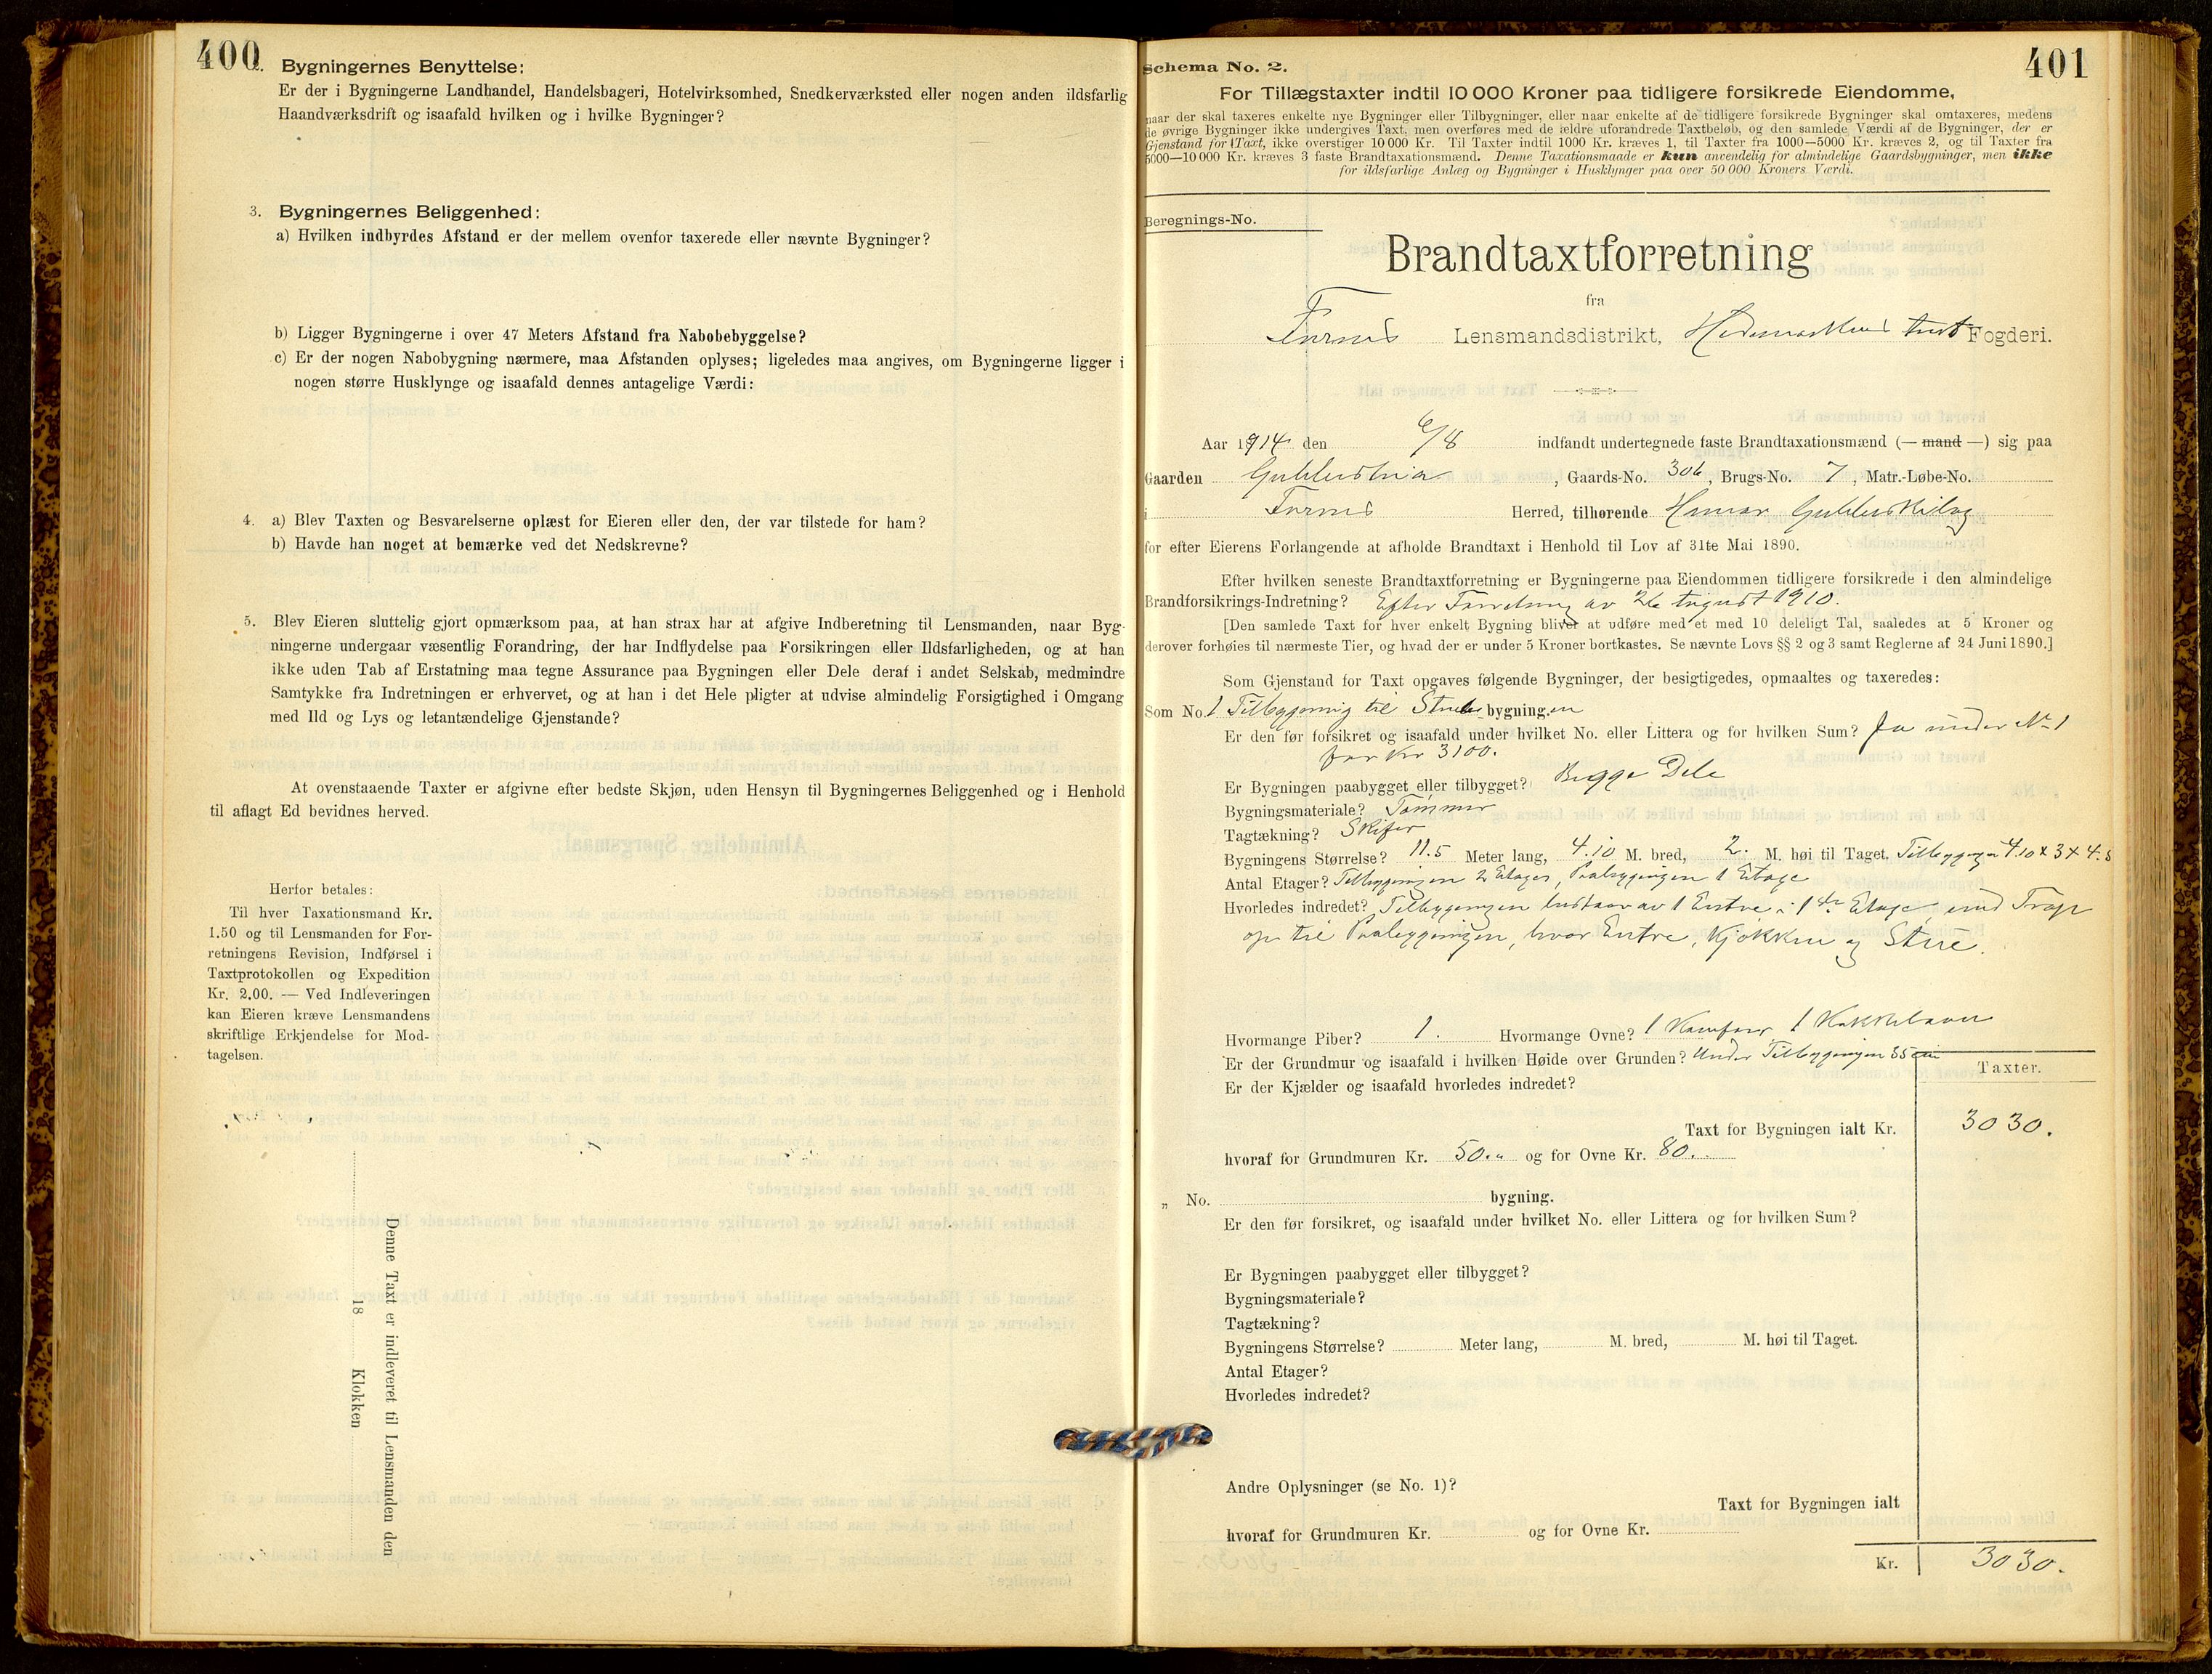 400
2. Bygningernes Benyttelse:
Er der i Bygningerne Landhandel, Handelsbageri, Hotelvirksomhed, Snedkerværksted eller nogen anden ildsfarlig
Haandværksdrift og isaafald hvilken og i hvilke Bygninger?
3. Bygningernes Beliggenhed:
a) Hvilken indbyrdes Afstand er der mellem ovenfor taxerede eller nævnte Bygninger?
b) Ligger Bygningerne i over 47 Meters Afstand fra Nabobebyggelse?
c) Er der nogen Nabobygning nærmere, maa Afstanden oplyses; ligeledes maa angives, om Bygningerne ligger i
nogen større Husklynge og isaafald dennes antagelige Værdi:
4. a) Blev Taxten og Besvarelserne oplæst for Eieren eller den, der var tilstede for ham?
b) Havde han noget at bemærke ved det Nedskrevne?
5. Blev Eieren sluttelig gjort opmærksom paa, at han strax har at afgive Indberetning til Lensmanden, naar Byg-
ningerne undergaar væsentlig Forandring, der har Indflydelse paa Forsikringen eller Ildsfarligheden, og at han
ikke uden Tab af Erstatning maa tegne Assurance paa Bygningen eller Dele deraf i andet Selskab, medmindre
Samtykke fra Indretningen er erhvervet, og at han i det Hele pligter at udvise almindelig Forsigtighed i Omgang
med Ild og Lys og letantændelige Gjenstande?
At ovenstaaende Taxter er afgivne efter bedste Skjøn, uden Hensyn til Bygningernes Beliggenhed og i Henhold
til aflagt Ed bevidnes herved.
Herfor betales:
Til hver Taxationsmand Kr.
1.50 og til Lensmanden for For-
retningens Revision, Indførsel i
Taxtprotokollen og Expedition
Kr. 2.00. — Ved Indleveringen
kan Eieren kræve Lensmandens
skriftlige Erkjendelse for Mod-
tagelsen.
Denne Taxt er indleveret til Lensmanden den
18 Klokken
401
Schema No. 2.
For Tillægstaxter indtil 10 000 Kroner paa tidligere forsikrede Eiendomme,
naar der skal taxeres enkelte nye Bygninger eller Tilbygninger, eller naar enkelte af de tidligere forsikrede Bygninger skal omtaxeres, medens
de øvrige Bygninger ikke undergives Taxt, men overføres med de ældre uforandrede Taxtbeløb, og den samlede Værdi af de Bygninger, der er
Gjenstand for Taxt, ikke overstiger 10 000 Kr. Til Taxter indtil 1000 Kr. kræves 1, til Taxter fra 1000—5000 Kr. kræves 2, og til Taxter fra
5000—10 000 Kr. kræves 3 faste Brandtaxationsmænd. Denne Taxationsmaade er kun anvendelig for almindelige Gaardsbygninger, men ikke
for ildsfarlige Anlæg og Bygninger i Husklynger paa over 50 000 Kroners Værdi.
Beregnings-No.
Brandtaxtforretning
fra
Furnes Lensmandsdistrikt, Hedemarkens Fogderi.
Aar 1914 den 6/8 indfandt undertegnede faste Brandtaxationsmænd (— mand —) sig paa
Gaarden , Gaards-No. 306, Brugs-No. 7, Matr.-Løbe-No.
i Furnes Herred, tilhørende
for efter Eierens Forlangende at afholde Brandtaxt i Henhold til Lov af 31te Mai 1890.
Efter hvilken seneste Brandtaxtforretning er Bygningerne paa Eiendommen tidligere forsikrede i den almindelige
Brandforsikrings-Indretning? Efter Forretning av 26 August 1910.
[Den samlede Taxt for hver enkelt Bygning bliver at udføre med et med 10 deleligt Tal, saaledes at 5 Kroner og
derover forhøies til nærmeste Tier, og hvad der er under 5 Kroner bortkastes. Se nævnte Lovs §§ 2 og 3 samt Reglerne af 24 Juni 1890.]
Som Gjenstand for Taxt opgaves følgende Bygninger, der besigtigedes, opmaaltes og taxeredes:
Som No. 1 Tilbygning til Stuebygning.en
Er den før forsikret og isaafald under hvilket No. eller Littera og for hvilken Sum? Ja under No 1
for Kr 3100.
Er Bygningen paabygget eller tilbygget? Begge Dele
Bygningsmateriale? Tømmer
Tagtækning? Skifer
Bygningens Størrelse? 11.5 Meter lang, 4.10 M. bred, 2. M. høi til Taget. Tilbyggingen 4.10 x 3 x 4.5
Antal Etager? Tilbyggingen 2 Etager, Paabyggingen 1 Etage
Hvorledes indredet? Tilbyggingen bestaar av 1 Entre i 1ste Etage med Trap
op til Paabyggingen, hvor Entre, Kjøkken og Stue.
Hvormange Piber? 1. Hvormange Ovne? 1 Komfur 1 Kakkelovn
Er der Grundmur og isaafald i hvilken Høide over Grunden? Under Tilbyggingen 35 cm
Er der Kjælder og isaafald hvorledes indredet?
Taxter.
Taxt for Bygningen ialt Kr. 3030.
hvoraf for Grundmuren Kr. 50.„ og for Ovne Kr. 80.
„ No. bygning.
Er den før forsikret, og isaafald under hvilket No. eller Littera og for hvilken Sum?
Er Bygningen paabygget eller tilbygget?
Bygningsmateriale?
Tagtækning?
Bygningens Størrelse? Meter lang, M. bred, M. høi til Taget.
Antal Etager?
Hvorledes indredet?
Andre Oplysninger (se No. 1)?
Taxt for Bygningen ialt
hvoraf for Grundmuren Kr. og for Ovne Kr.
Kr. 3030.